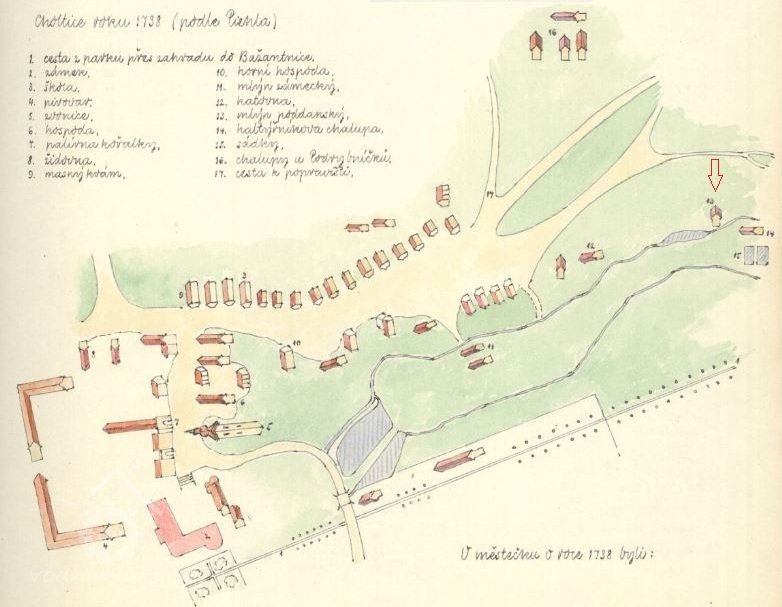 Choltice roku 1738 (podle Diehla)
1. cesta z parku přes zahradu do Bažantnice,
2. zámek,
3. škola,
4. pivovar,
5. zvonice,
6. hospoda,
7. palírna kořalky,
8. židovna,
9. masný krám,
10. horní hospoda,
11. mlýn zámecký,
12. katovna,
13. mlýn poddanský,
14. haltýrníkova chalupa,
15. sádky,
16. chalupy u Podrybníčků,
17. cesta k popravišti.
16
17
13
14
15
12
9
3
10
8
11
6
7
5
1
4
2
1
1
V městečku v roce 1738 byli: